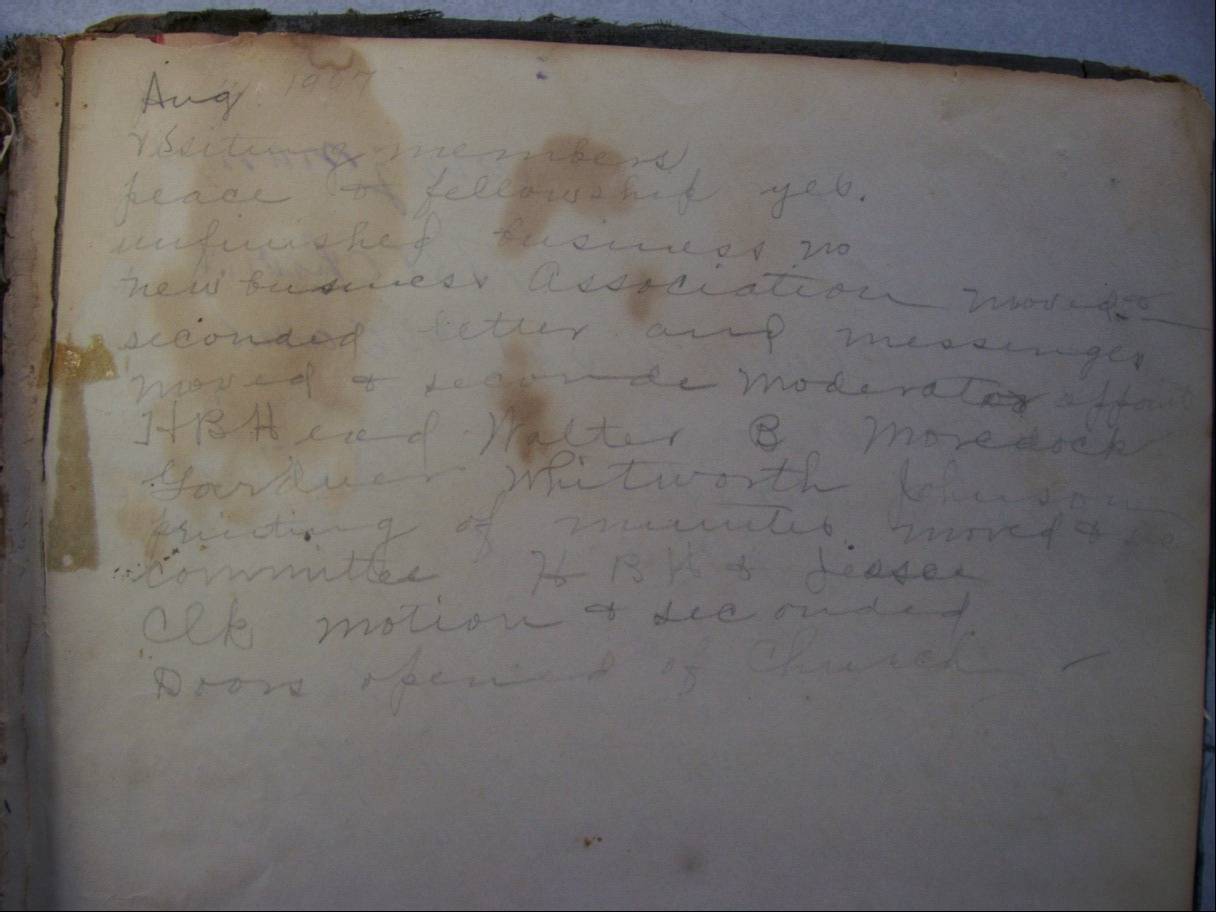 Aug
Visiting members
peace & fellowship yes.
unfinished business no
new business Association moved &
seconded letter and messenger
moved & seconde Moderator
HBHead Walter B
Gardner Whitworth Johnson
printing of minutes moved &
committee H B H & Jessee
Clk motion & seconded
Doors opened of Church